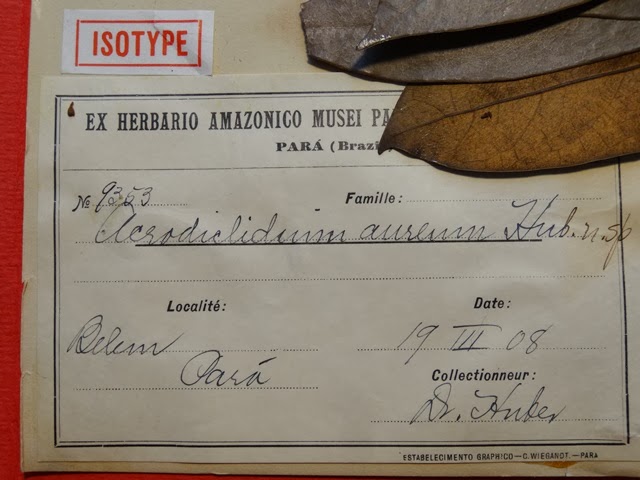 ISOTYPE
EX HERBARIO AMAZONICO MUSEI PA
PARÁ (Brazi
№ 9353 Famille:
Acrodiclidium aureum Hub. n. sp
Localité: Date:
Belem 19 III 08
Pará
Collectionneur:
Dr. Huber
ESTABELECIMENTO GRAPHICO—C. WIEGANDT.—PARA